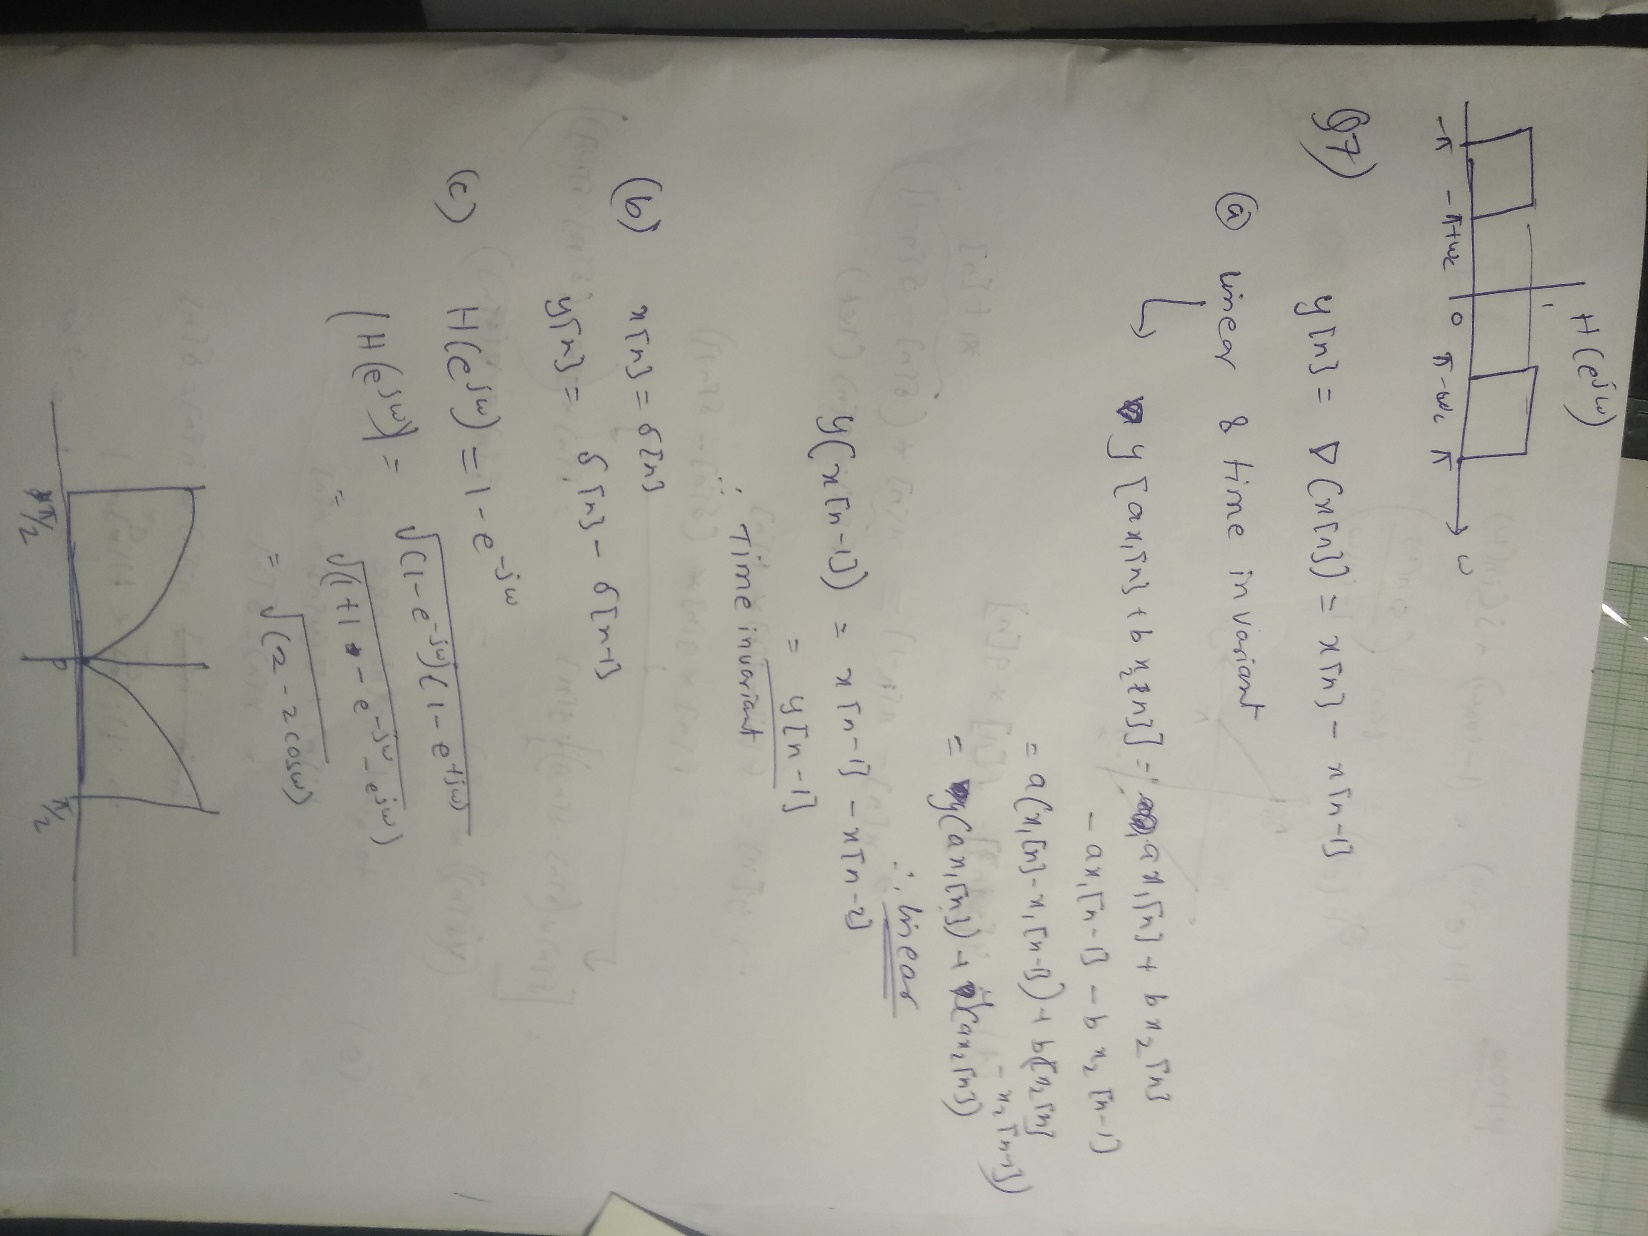 H(e^{jω})
1
-π -π+ω_c 0 π-ω_c π ω
Q7) y[n] = ∇(x[n]) = x[n] - x[n-1]
(a) linear & time invariant
↳ y[ax₁[n] + bx₂[n]] = ax₁[n] + bx₂[n]
- ax₁[n-1] - bx₂[n-1]
= a(x₁[n] - x₁[n-1]) + b(x₂[n]
- x₂[n-1])
= y(ax₁[n]) + y(ax₂[n])
∴ linear
y(x[n-1]) = x[n-1] - x[n-2]
= y[n-1]
∴ Time invariant
(b) x[n] = δ[n]
y[n] = δ[n] - δ[n-1]
(c) H(e^{jω}) = 1 - e^{-jω}
|H(e^{jω})| = √(1-e^{-jω})(1-e^{+jω})
= √(1+1 - e^{-jω} - e^{jω})
= √(2-2cosω)
π/2 0 π/2